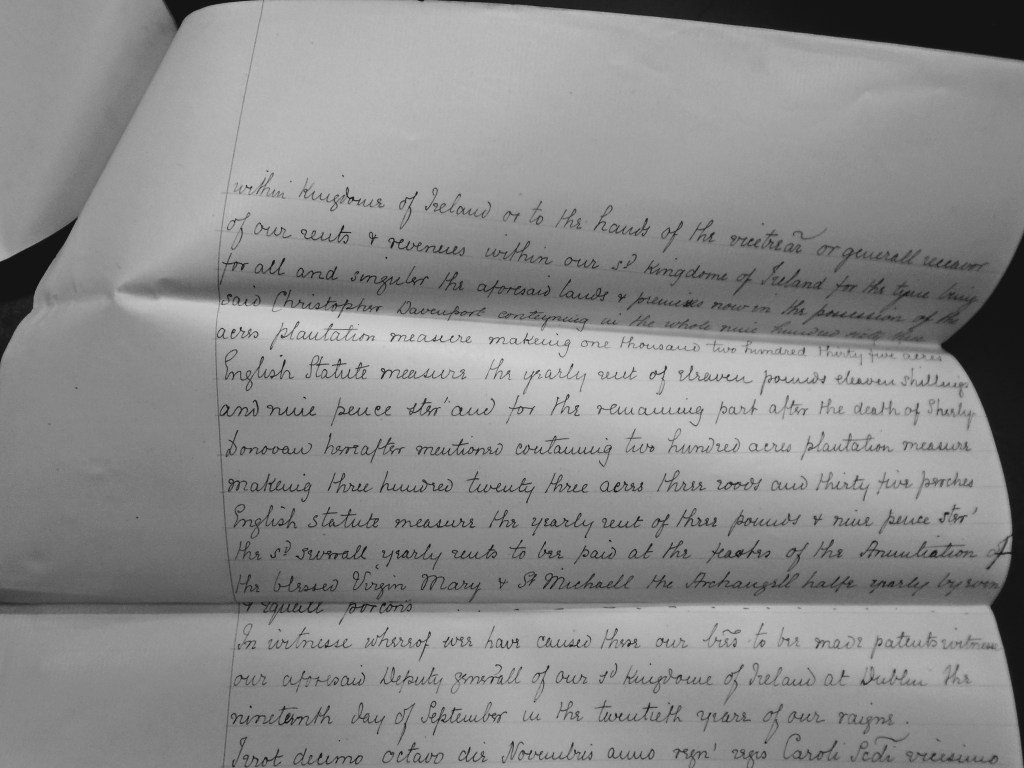 within Kingdome of Ireland or to the hands of the vicetreãr or generall receavor
of our rents & revenues within our sd Kingdome of Ireland for the tyme being
for all and singuler the aforesaid lands & premises now in the possession of the
said Christopher Davenport conteyning in the whole nine hundred
acres plantation measure makeing one thousand two hundred thirty five acres
English Statute measure the yearly rent of eleaven pounds eleaven shillings
and nine pence ster' and for the remaining part after the death of Sherly
Donovan hereafter mentioned containing two hundred acres plantation measure
makeing three hundred twenty three acres three roods and thirty five perches
English statute measure the yearly rent of three pounds & nine pence ster'
the sd severall yearly rents to bee paid at the feastes of the Anuntiation of
the blessed Virgin Mary & St Michaell the Archangell halfe yearly by even
& equall porcons
In witnesse whereof wee have caused these our lr̃es to bee made patents witnesse
our aforesaid Deputy generall of our sd Kingdome of Ireland at Dublin the
nineteenth day of September in the twentieth yeare of our raigne.
Irrot decimo octavo die Novembris anno regn' regis Caroli Scdi vicesimo